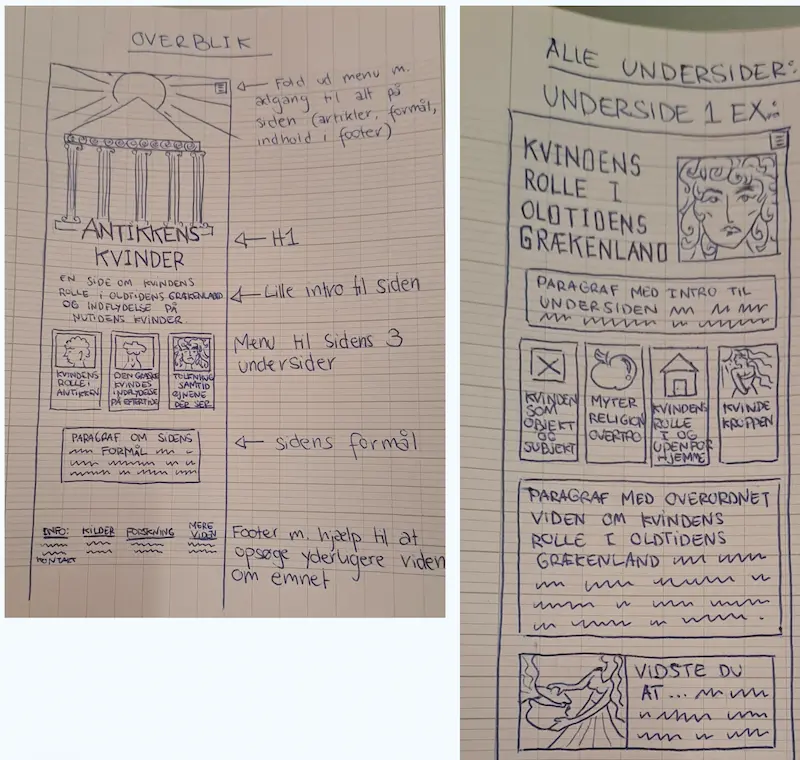 OVERBLIK
Fold ud menu m.
adgang til alt på
siden (artikler, formål,
indhold i footer)
ANTIKKENS
KVINDER
H1
EN SIDE OM KVINDENS
ROLLE I OLDTIDENS GRÆKENLAND
OG INDFLYDELSE PÅ
NUTIDENS KVINDER
Lille intro til siden
KVINDENS
ROLLE I
ANTIKKEN
DEN GRÆSKE
KVINDES
INDFLYDELSE
PÅ EFTERTIDEN
TOLKNING
SAMTID
ØJNENE
DER SER
Menu til sidens 3
undersider
PARAGRAF OM SIDENS
FORMÅL
sidens formål
INFO:
KONTAKT
KILDER
FORSKNING
MERE
VIDEN
Footer m. hjælp til at
opsøge yderlugere viden
om emnet
ALLE UNDERSIDER:
UNDERSIDE 1 EX:
KVINDENS
ROLLE I
OLDTIDENS
GRÆKENLAND
PARAGRAF MED INTRO TIL
UNDERSIDEN
KVINDEN
SOM
OBJEKT
OG
SUBJEKT
MYTER
RELIGION
OVERTRO
KVINDENS
ROLLE
I OG
UDENFOR
HJEMME
KVINDE
KROPPEN
PARAGRAF MED OVERORDNET
VIDEN OM KVINDENS
ROLLE I OLDTIDENS
GRÆKENLAND
VIDSTE DU
AT...